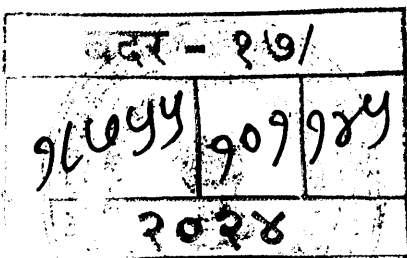 दर - १७/
१८७५५ १०१ १४५
२०२४